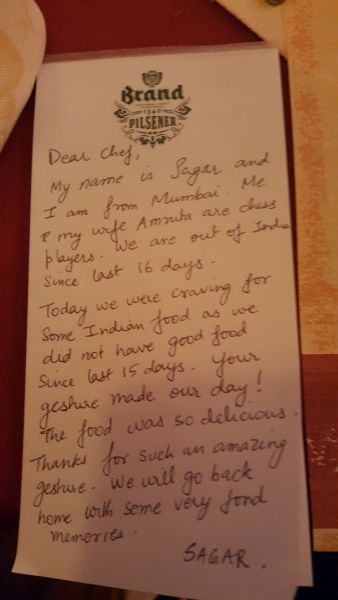 Brand
1340
PILSENER
Dear Chef,
My name is Sagar and
I am from Mumbai. Me
& my wife Amruta are chess
players. We are out of India
since last 16 days.
Today we were craving for
some Indian food as we
did not have good food
since last 15 days. Your
gesture made our day!
The food was so delicious.
Thanks for such an amazing
gesture. We will go back
home with some very fond
memories.
SAGAR.